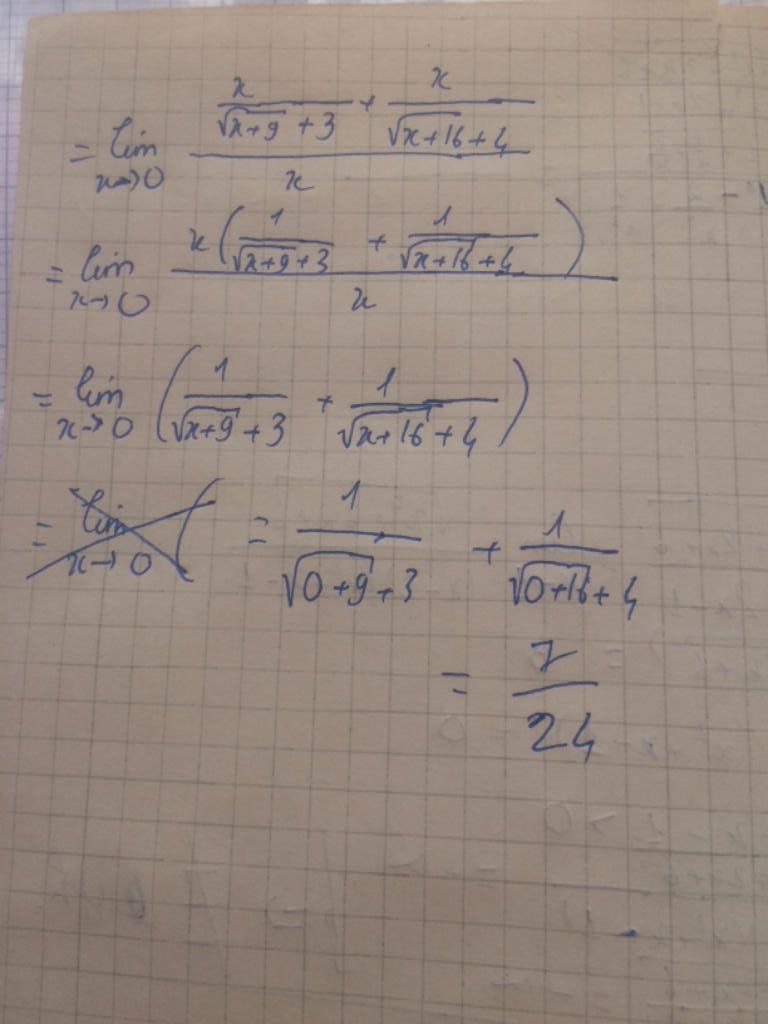 = lim x→0 (x/(√(x+9) + 3) + x/(√(x+16) + 4)) / x
= lim x→0 x(1/(√(x+9) + 3) + 1/(√(x+16) + 4)) / x
= lim x→0 (1/(√(x+9) + 3) + 1/(√(x+16) + 4))
= lim x→0 ( = 1/(√(0+9) + 3) + 1/(√(0+16) + 4)
= 7/24